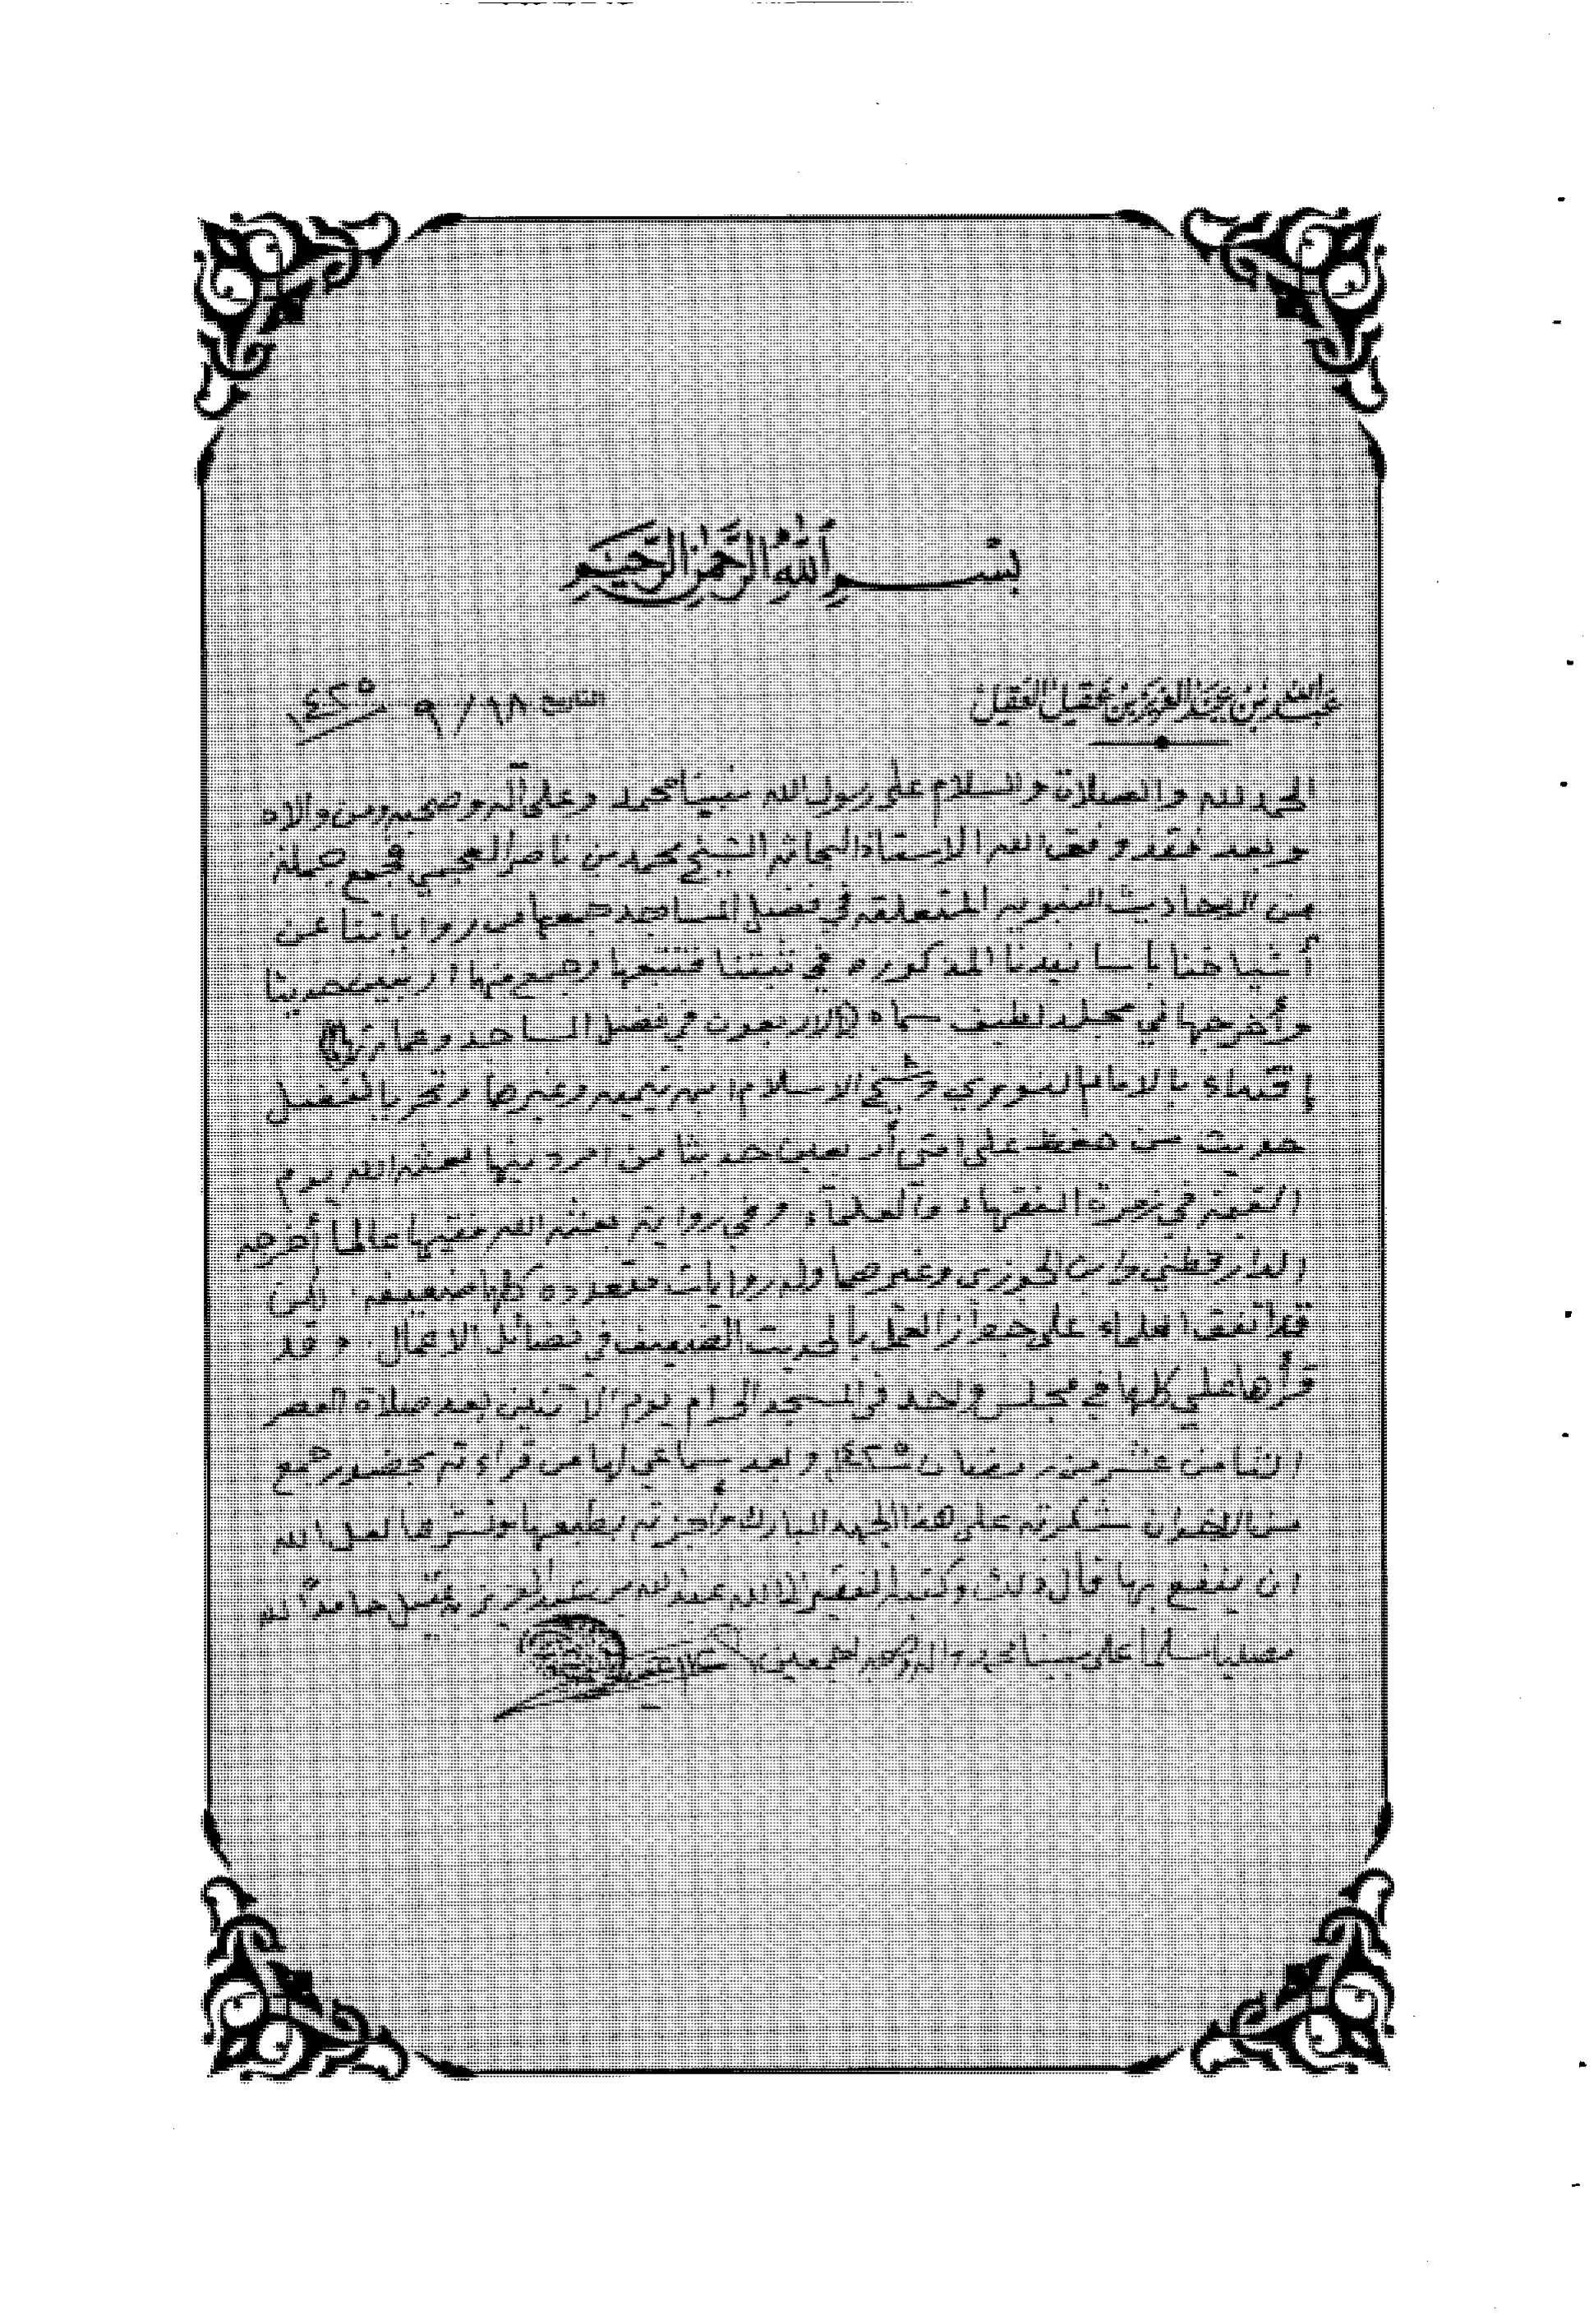 بسم الله الرحمن الرحيم
عبد الله بن عبد العزيز بن عقيل العقيل
التاريخ ١٨ / ٩ / ١٤٢٥
الحمد لله والصلاة والسلام على رسول الله نبينا محمد وعلى آله وصحبه ومن والاه
وبعد فقد وفق الله الاستاذ البحاثه الشيخ محمد بن ناصر العجمي فجمع جملة
من الاحاديث النبويه المتعلقه في فضل المساجد جمعها من رواياتنا عن
أشياخنا بأسانيدنا المذكوره في ثبتنا فتتبعها وجمع منها اربعين حديثا
وأخرجها في مجلد لطيف سماه (الاربعون في فضل المساجد وعمارتها)
إقتداء بالامام النووي وشيخ الاسلام ابن تيميه وغيرها وتحريا لفضل
حديث من حفظ على امتي أربعين حديثا من امر دينها بعثه الله يوم
القيمة في زمرة الفقهاء والعلماء وفي رواية بعثه الله فقيها عالما أخرجه
الدارقطني وابن الجوزي وغيرها وله روايات متعدده كلها ضعيفه لكن
قد اتفق العلماء على جواز العمل بالحديث الضعيف في فضائل الاعمال وقد
قرأها علي كلها في مجلس واحد في المسجد الحرام يوم الأثنين بعد صلاة العصر
الثامن عشر من رمضان ١٤٢٥ وبعد سماعي لها من قراءته بحضور جمع
من الاخوان شكرته على هذا الجهد المبارك وأجزته بطبعها ونشرها لعل الله
ان ينفع بها قال ذلك وكتبه الفقير الا الله عبد الله بن عبد العزيز بن عقيل حامداً لله
مصليا مسلما على نبينا محمد وآله وصحبه اجمعين